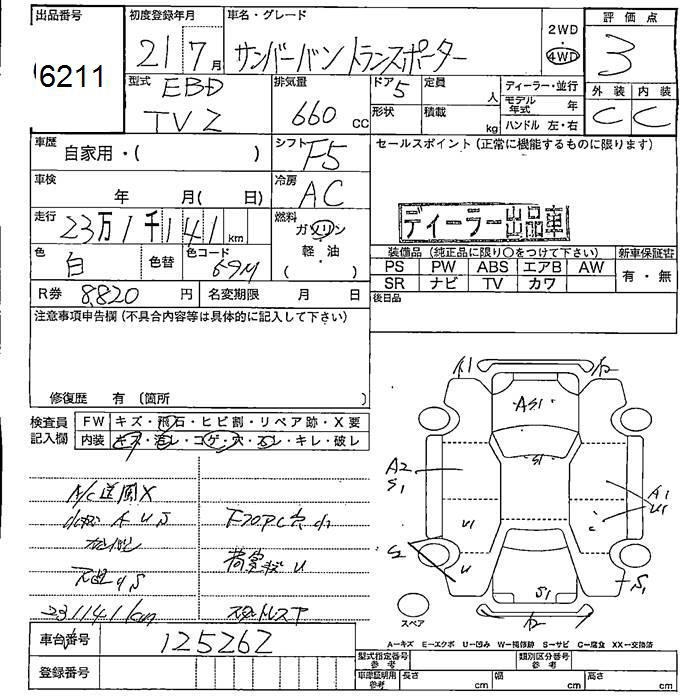 出品番号
6211
初度登録年月
21 7月
車名・グレード
サンバーバン トランスポーター
2WD
・
4WD
評価点
3
外装 内装
C C
型式
EBD
TV2
排気量
660 CC
ドア
5
形状
定員
人
積載
kg
ディーラー・並行
モデル年式 年
ハンドル 左・右
車歴
自家用・( )
シフト
F5
セールスポイント(正常に機能するものに限ります)
車検
年 月( 日)
冷房
AC
ディーラー出品車
走行
23万1千141km
燃料
ガソリン
軽・油
( )
色
白
色替
色コード
69M
装備品(純正品に限り○をつけて下さい)
新車保証書
PS PW ABS エアB AW
有・無
SR ナビ TV カワ
R券 8820 円
名変期限 月 日
後日品
注意事項申告欄(不具合内容等は具体的に記入して下さい)
修復歴 有 〔箇所 〕
検査員
記入欄
FW キズ・飛石・ヒビ割・リペア跡・X要
内装 キズ・汚レ・コゲ・穴・スレ・キレ・破レ
A/C送風X
231141km
車台番号
125262
登録番号
A1
AS1
S1
A2
S1
A1
U1
U1
U
S1
S1
スペア
A-キズ E-エクボ U-凹み W-補修跡 S-サビ C-腐食 XX-交換済
型式指定番号
参考
類別区分番号
参考
車庫証明用
参考
長さ cm
幅 cm
高さ cm